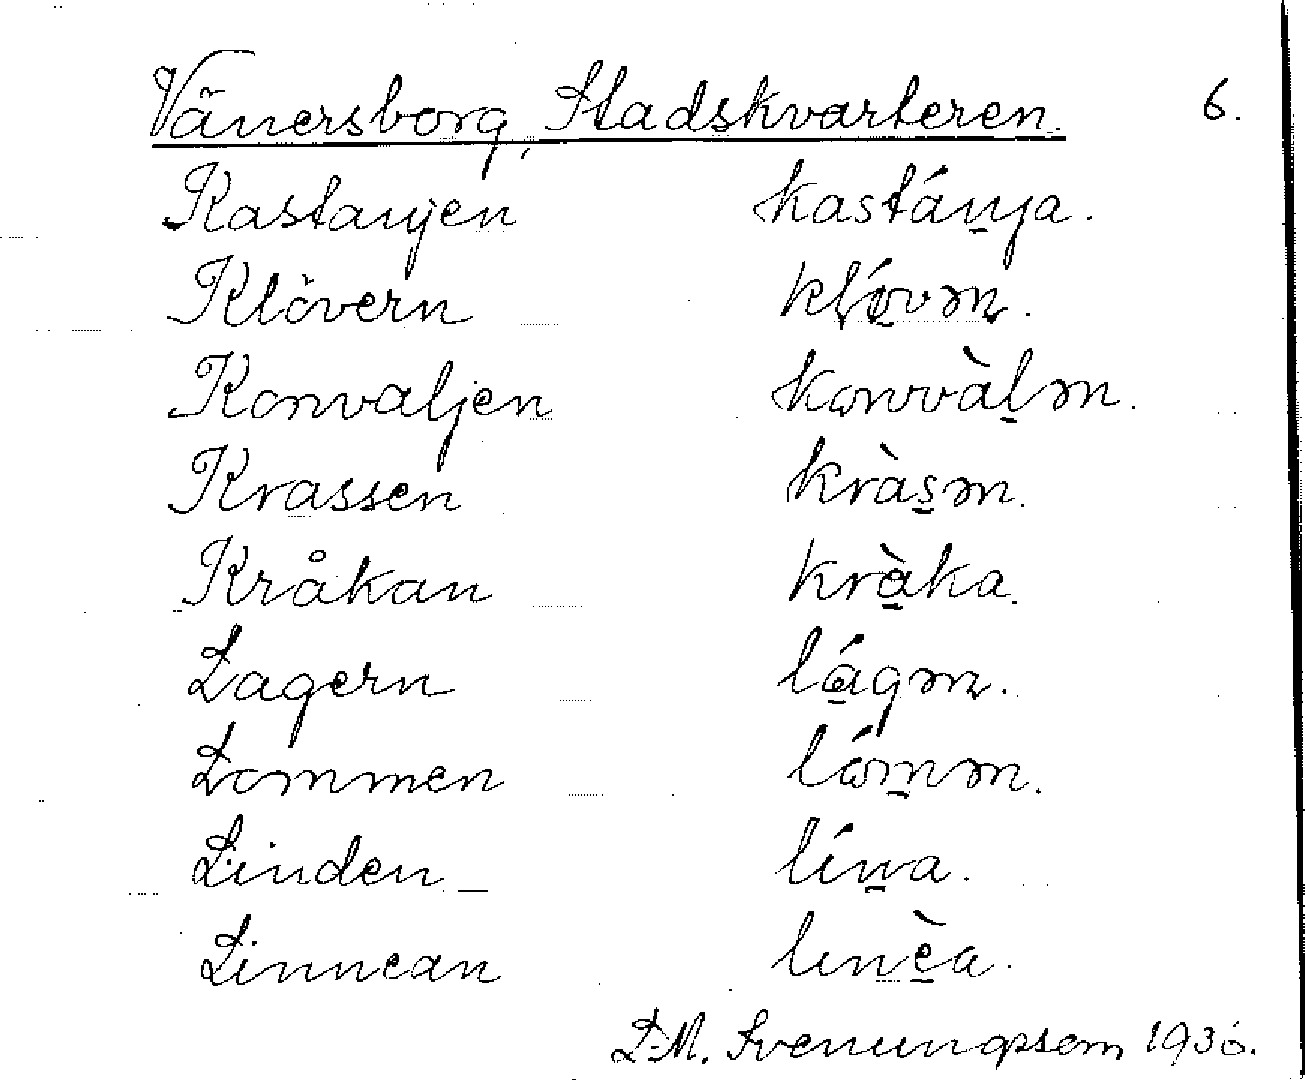 Vänersborg, Stadskvarteren. 6.
Kastanjen kastáṉja.
Klövern
Konvaljen kɷnvàḻən.
Krassen kràs̱ən.
Kråkan krå̱̀ka.
Lagern
Lommen lɷ́m̱ən.
Linden líṉa.
Linnean lɩnè̱a.
L-M. Svenungsson 1936.